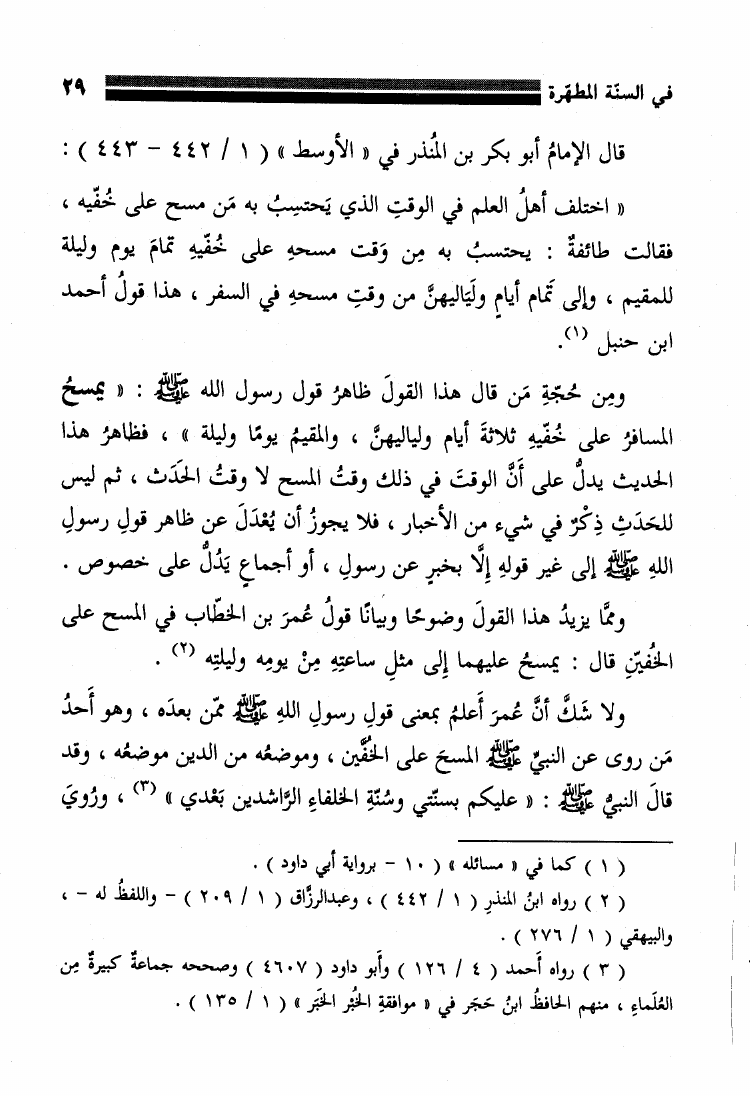 في السنّة المطهّرة ٢٩
قال الإمامُ أبو بكر بن المُنذر في « الأوسط » ( ١ / ٤٤٢ – ٤٤٣ ) :
« اختلف أهلُ العلم في الوقتِ الذي يَحتسِبُ به مَن مسح على خُفّيه ،
فقالت طائفةٌ : يحتسبُ به مِن وَقت مسحهِ على خُفّيهِ تمامَ يوم وليلة
للمقيم ، وإلى تَمام أيامٍ ولَيَاليهنَّ من وقتِ مسحهِ في السفر ، هذا قولُ أحمد
ابن حنبل (١).
ومِن حُجّةِ مَن قال هذا القولَ ظاهرُ قول رسول الله ﷺ : « يمسحُ
المسافرُ على خُفّيهِ ثلاثةَ أيام ولياليهنَّ ، والمقيمُ يومًا وليلة » ، فظاهرُ هذا
الحديث يدلُّ على أَنَّ الوقتَ في ذلك وقتُ المسح لا وقتُ الحَدَث ، ثم ليس
للحَدَثِ ذِكْرٌ في شيء من الأخبار ، فلا يجوزُ أن يُعْدَلَ عن ظاهر قولِ رسولِ
اللهِ ﷺ إلى غير قولهِ إِلَّا بخبرٍ عن رسولِ ، أو أجماعٍ يَدُلُّ على خصوص .
وممَّا يزيدُ هذا القولَ وضوحًا وبيانًا قولُ عُمرَ بن الخطّاب في المسح على
الخُفّينِ قال : يمسحُ عليهما إِلى مثلِ ساعتِهِ مِنْ يومِه وليلتِه (٢) .
ولا شَكَّ أنَّ عُمرَ أَعلمُ بمعنى قولِ رسولِ اللهِ ﷺ ممّن بعدَه ، وهو أَحدُ
مَن روى عن النبيِّ ﷺ المسحَ على الخُفَّين ، وموضعُه من الدين موضعُه ، وقد
قالَ النبيُّ ﷺ : « عليكم بسنّتي وسُنّةِ الخلفاءِ الرَّاشدين بَعْدي » (٣) ، ورُويَ
( ١ ) كما في « مسائله » ( ١٠ – برواية أبي داود ) .
( ٢ ) رواه ابنُ المنذرِ ( ١ / ٤٤٢ ) ، وعبدالرزَّاق ( ١ / ٢٠٩ ) – واللفظُ له – ،
والبيهقي ( ١ / ٢٧٦ ) .
( ٣ ) رواه أَحمد ( ٤ / ١٢٦ ) وأَبو داود ( ٤٦٠٧ ) وصححه جماعةٌ كبيرةٌ مِن
العُلَماءِ ، منهم الحافظُ ابنُ حَجَر في « موافقةِ الخُبْر الخَبَر » ( ١ / ١٣٥ ) .